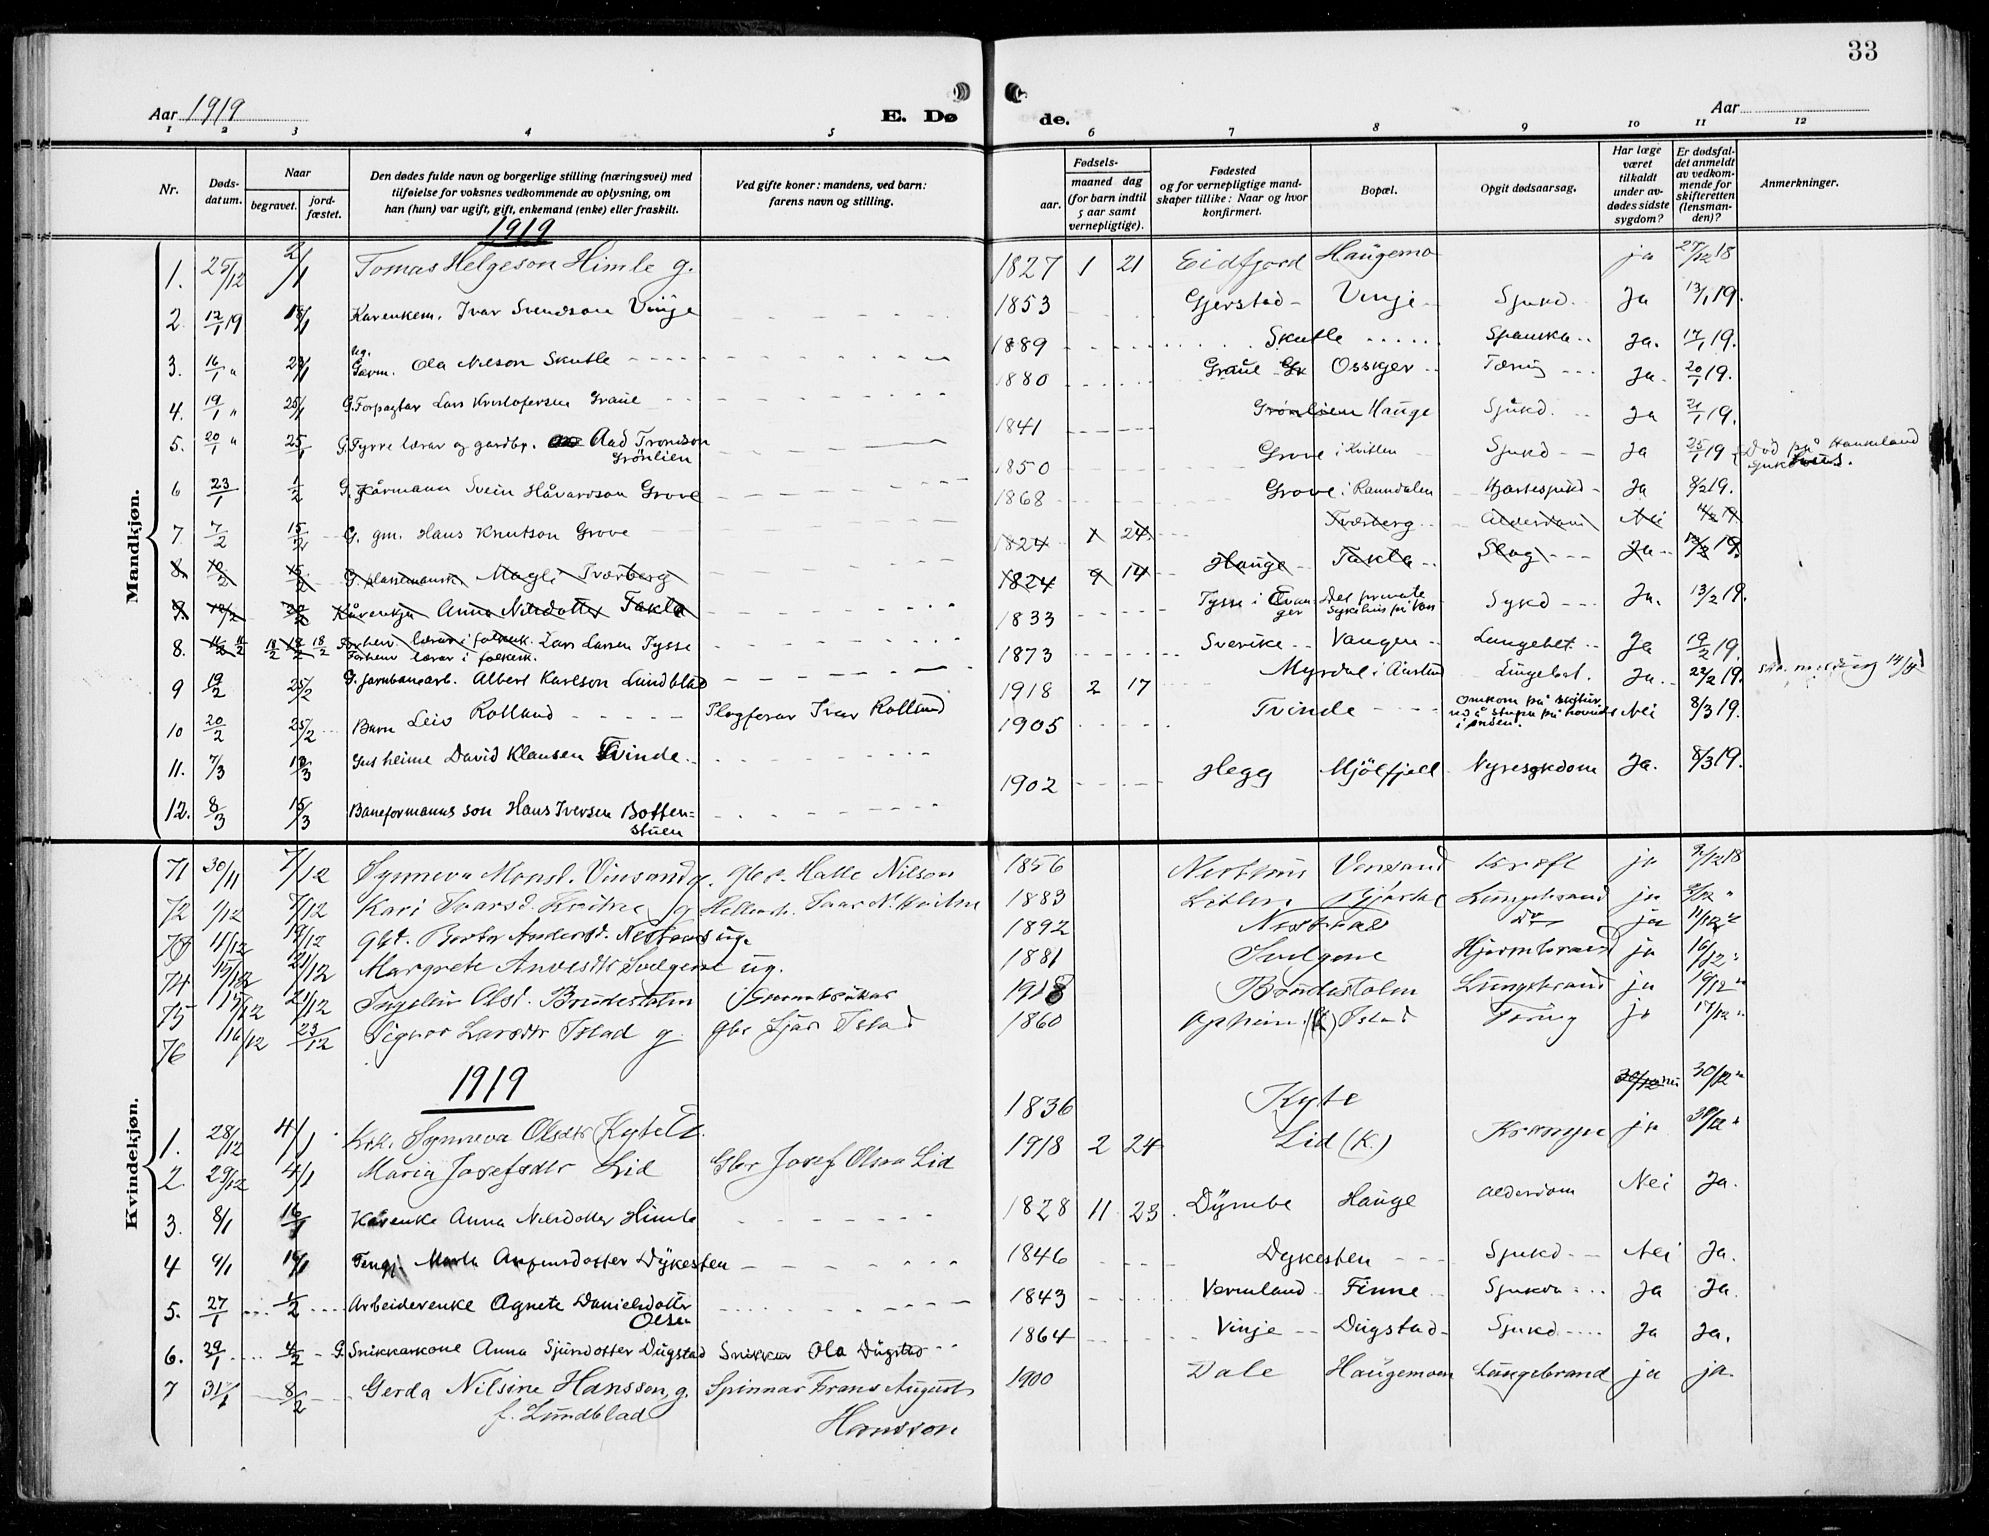 33
Aar 1919
E. Dø
de.
Aar
1 2 3 4 5 6 7 8 9 10 11 12
Nr.
Døds-
datum.
Naar
begravet.
jord-
fæstet.
Den dødes fulde navn og borgerlige stilling (næringsvei) med
tilføielse for voksnes vedkommende av oplysning, om
han (hun) var ugift, gift, enkemand (enke) eller fraskilt.
Ved gifte koner: mandens, ved barn:
farens navn og stilling.
Fødsels-
aar.
maaned dag
(for barn indtil
5 aar samt
vernepligtige).
Fødested
og for vernepligtige mand-
skaper tillike: Naar og hvor
konfirmert.
Bopæl.
Opgit dødsaarsag.
Har læge
været
tilkaldt
under av-
dødes sidste
sygdom?
Er dødsfal-
det anmeldt
av vedkom-
mende for
skifteretten
(lensman-
den)?
Anmerkninger.
Mandkjøn.
1919
1. 25/12 2/1 Tomas Helgeson Himle g. 1827 1 21 Eidfjord Haugemo ja 27/12 18
2. 12/1 19 18/1 Kårenkem. Ivar Svendson Vinje 1853 Gjerstad Vinje Sjukd. Ja 13/1 19.
3. 16/1 " 23/1 ug. Garm. Ola Nilson Skutle 1889 Skutle Spanska Ja. 17/1 19.
4. 19/1 " 25/1 G. Forpagtar Lars Kristofersen Graue 1880 Graue Gr Osskjer Tæring Ja 20/1 19.
5. 20/1 " 25/1 G. Fyrre lærar og gardbr. Aad Trondson
Grönlien 1841 Grönlien Hauge Sjukd. Ja 21/1 19.
6 23/1 1/2 G. Kårmann Svein Håvardson Grove 1850 Grove i Kvitlen Sjukd Ja 25/1 19 Död på Haukeland
sjukehus.
7 7/2 15/2 G. gm. Hans Knutson Grove 1868 Grove i Raundalen Hjartesjukd Ja 8/2 19.
8. 10/2 15/2 G. plassemansk. Magli Tværberg 1824 1 24 Tværberg Alderdom Nei 11/2 19
9. 12/2 20/2 Kårenkja Anna Nilsdotter Takla 1824 9 14 Hauge Takla Slag Ja 13/2 19.
8. 11/2 18/2 Forhenv. lærar i folkesk. Lars Larsen Tysse
Forhenv lærar i folkesk. 1833 Tysse i Evan-
ger Det private
sykehus på Voss Sykd Ja. 13/2 19.
9 19/2 25/2 G. jarnbanearb. Albert Karlson Lundblad 1873 Sverike Vangen Lungebet. Ja 19/2 19.
10 20/2 25/2 Barn Leiv Rolland Plogferar Ivar Rolland 1918 2 17 Myrdal i Aurland Lungebet. Ja. 22/2 19.
11. 7/3 13/3 Gut heime David Klausen Tvinde 1905 Tvinde Omkom på skitur Nei 8/3 19.
12. 8/3 15/3 Baneformanns son Hans Iversen Botten=
stuen 1902 Hegg Mjölfjell Nyresykdom Ja. 8/3 19.
Kvindekjøn.
71 30/11 7/12 Synneva Monsd. Vinsand g. Gbr. Halle Nilson 1856 Vinsand Kræft ja 2/12 18
72 1/12 7/12 Kari Ivarsd. Kvitne g Ivar N. Kvitne 1883 Lungebrand ja 3/12 "
73 11/12 19/12 gbd. Berta Andersd. Nestaas ug. 1892 Nestaas do ja 11/12 "
74 15/12 21/12 Margrete Svelgene ug. 1881 Svelgene ja 16/12 "
75 15/12 21/12 Ingebjør Olsd. Brudestolen 1918 Brudestolen Lungebrand ja 16/12 "
76 16/12 23/12 Signor Larsdtr Istad g. gbr Sjur Istad 1860 Opheim (K) Istad Tæring ja 17/12 "
1919
1. 28/12 4/1 Synneva Olsdtr Kyte E. 1836 Kyte nei 30/12 "
2. 29/12 4/1 Maria Josefsdtr Lid Gbr Josef Olson Lid 1918 2 24 Lid (K.) Krampe ja 30/12 "
3. 8/1 16/1 Kårenke Anna Nilsdotter Himle 1828 11 23 Dymbe Hauge Alderdom Nei Ja.
4 9/1 19/1 Marta Arfinsdotter Dykesten 1846 Dykesten Sjukd Nei Ja.
5. 27/1 1/2 Arbeiderenke Agnete Danielsdotter
Olsen 1843 Vermland Finne Sjukdn Ja Ja.
6. 29/1 4/2 G. Snikkarkone Anna Sjurdotter Dugstad Snikkar Ola Dugstad 1864 Vinje Dugstad Sjukd Ja Ja.
7 31/1 8/2 Gerda Nilsine Hansson, g. Spinnar Frans August
f. Lundblad Hansson 1900 Dale Haugemoen Lungebrand ja ja.